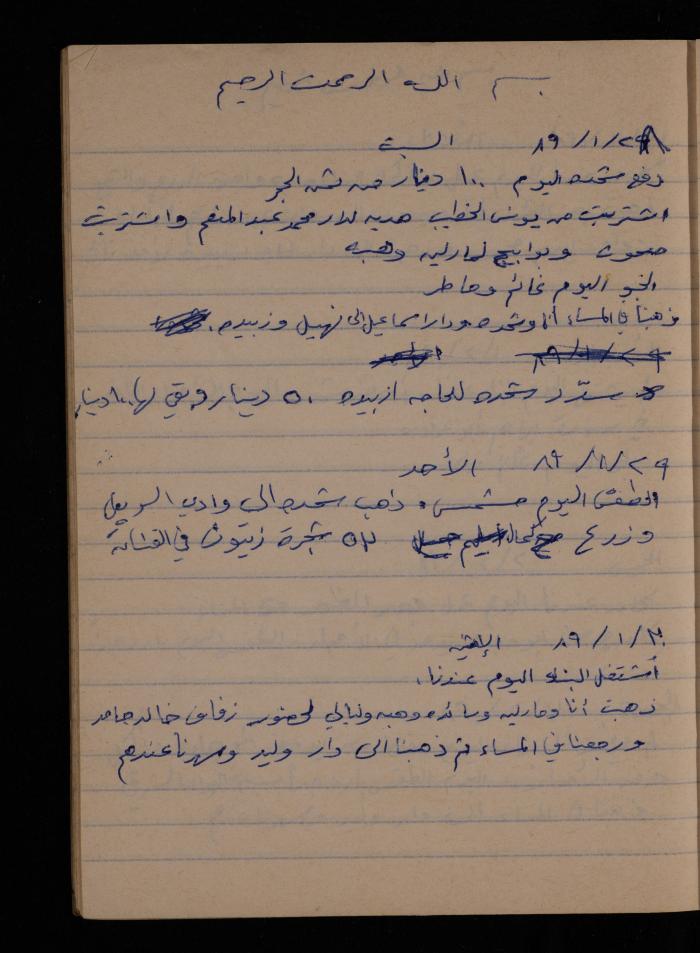 بسم الله الرحمن الرحيم
٨٩/١/٢٨ السبت
دفع شحده اليوم ١٠٠ دينار من ثمن الحجر
اشتريت من يونس الخطيب هديه لدار محمد عبد المنعم واشتريت
صحون وبوابيج لمارليه وهبه
الجو اليوم غائم وماطر
ذهبنا في المساء أنا وشحده ودار اسماعيل الى نهيل وزبيده.
٨٩/١/٢٩ الأحد
سدّد شحده للحاجه ازبيده ٥٠ دينار وبقي لها ١٠٠ دينار
٨٩/١/٢٩ الأحد
الطقس اليوم مشمس. ذهب شحده الى وادي السويعل
وزرع ٥٣ شجرة زيتون في القناية
٨٩/١/٣٠ الإثنين
اشتغل البناء اليوم عندنا.
ذهبت أنا ومارليه ورائده وهبه وليالي لحضور زفاف خالد حامد
ورجعنا في المساء ثم ذهبنا الى دار وليد وسهرنا عندهم